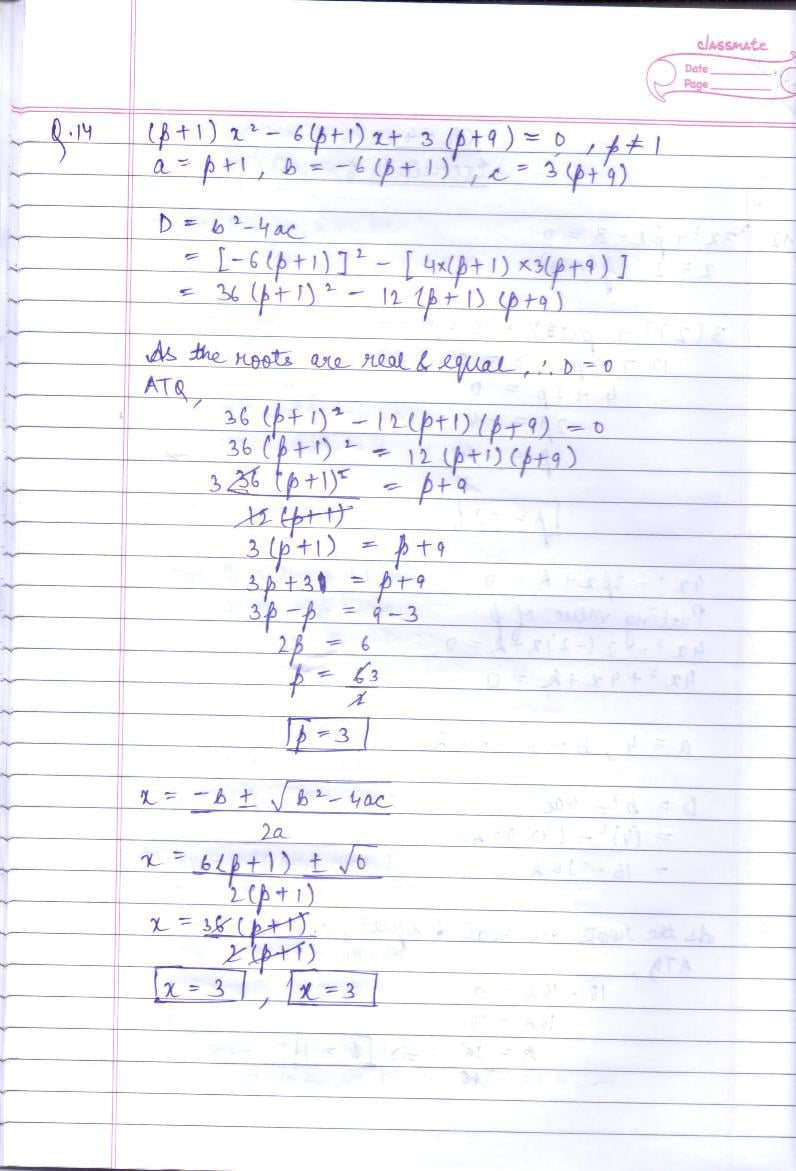 classmate
Date
Page
Q.14 (p+1) x² - 6(p+1) x + 3 (p+9) = 0 , p ≠ 1
a = p+1 , b = -6 (p+1) , c = 3(p+9)
D = b² - 4ac
= [-6(p+1)]² - [4×(p+1)×3(p+9)]
= 36 (p+1)² - 12 (p+1) (p+9)
As the roots are real & equal, ∴ D = 0
ATQ,
36 (p+1)² - 12(p+1)(p+9) = 0
36 (p+1)² = 12 (p+1)(p+9)
3 36 (p+1)² = p+9
12 (p+1)
3 (p+1) = p+9
3p+3 = p+9
3p-p = 9-3
2p = 6
p = 6 3
2
p = 3
x = -b ± √b² - 4ac
2a
x = 6(p+1) ± √0
2(p+1)
x = 36 (p+1)
2 (p+1)
x = 3 , x = 3